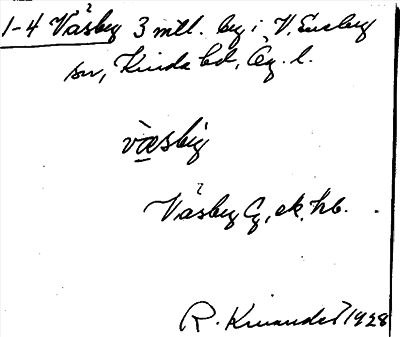 1-4 Väsby 3 mtl. by i V. Eneby
sn, Kinda hd, Ög. l.
væsby
Väsby G, ek. kb.
R. Kinander 1928